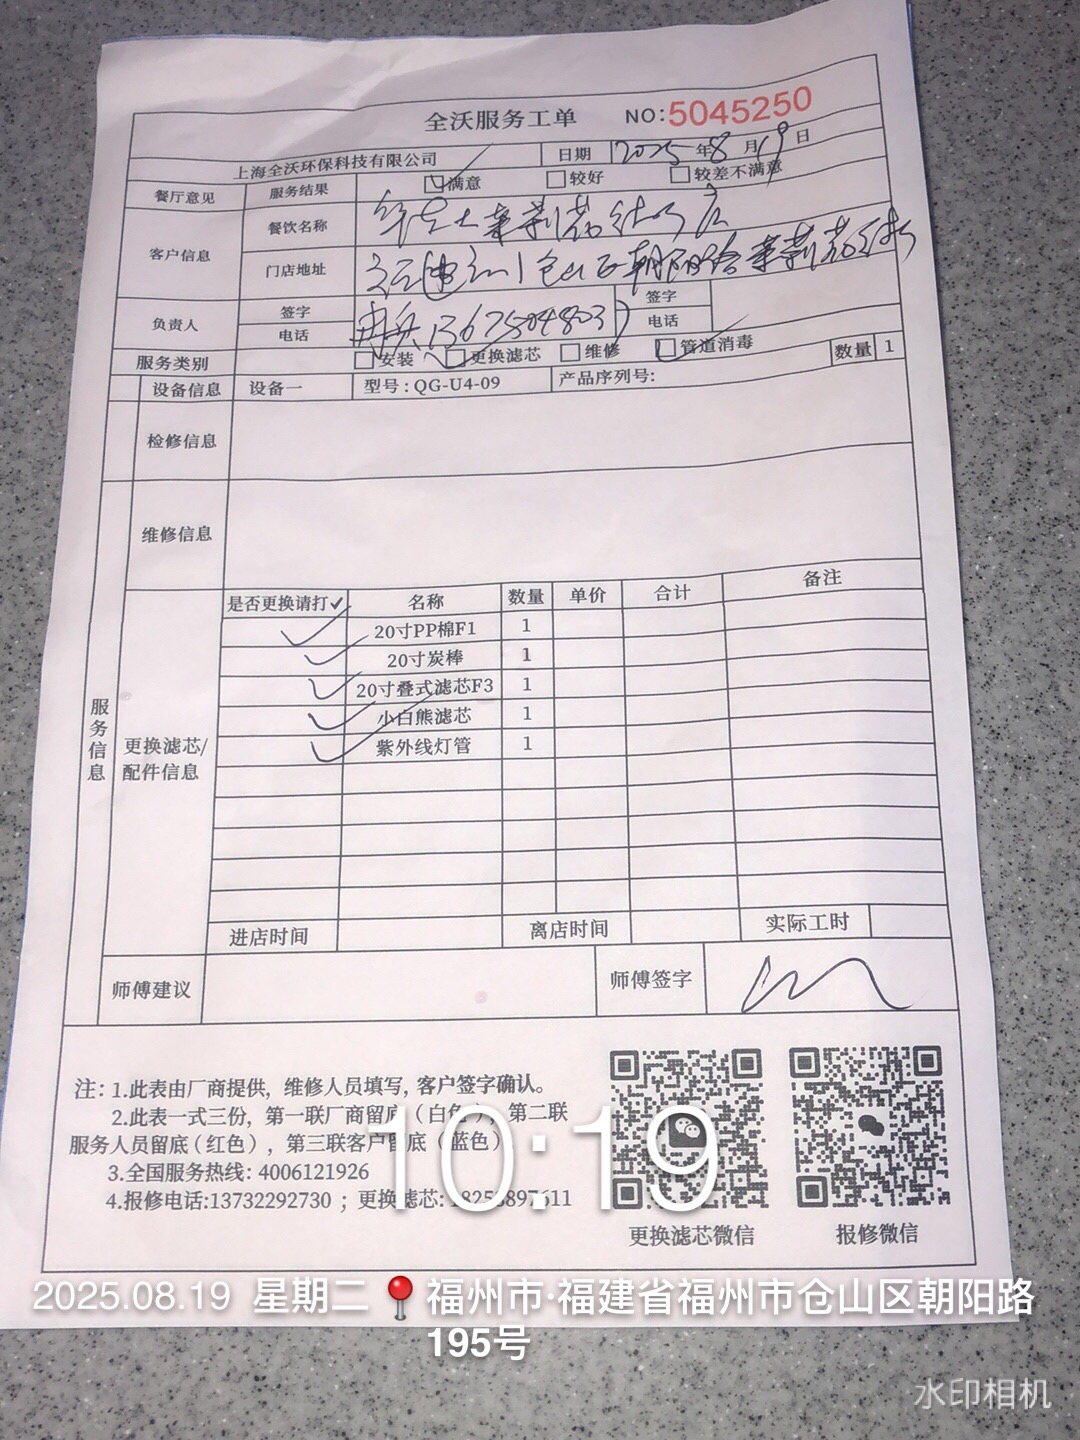 全沃服务工单 NO:5045250
上海全沃环保科技有限公司 日期 2025年8月19日
餐厅意见 服务结果 满意 较好 较差不满意
客户信息 餐饮名称 华莱士茉莉花
门店地址 仓山区朝阳路茉莉花
负责人 签字 签字
电话 电话
服务类别 安装 更换滤芯 维修 管道消毒 数量 1
设备信息 设备一 型号:QG-U4-09 产品序列号:
检修信息
维修信息
服务信息
更换滤芯/
配件信息
是否更换请打✓ 名称 数量 单价 合计 备注
✓ 20寸PP棉F1 1
✓ 20寸炭棒 1
✓ 20寸叠式滤芯F3 1
✓ 小白熊滤芯 1
✓ 紫外线灯管 1
进店时间 离店时间 实际工时
师傅建议 师傅签字
注: 1.此表由厂商提供，维修人员填写，客户签字确认。
2.此表一式三份，第一联厂商留底（白色），第二联
服务人员留底（红色），第三联客户留底（蓝色）
3.全国服务热线: 4006121926
4.报修电话:13732292730 ；更换滤芯:
更换滤芯微信 报修微信
10:19
2025.08.19 星期二 福州市·福建省福州市仓山区朝阳路
195号
水印相机